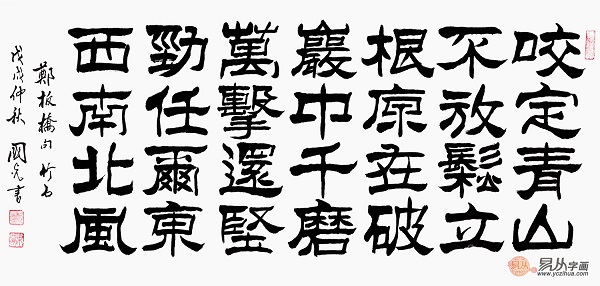 咬定青山
不放鬆立
根原在破
巖中千磨
萬擊還堅
勁任爾東
西南北風
鄭板橋句 竹石
戊戌仲秋 國 書
易从字画
www.yczihua.com